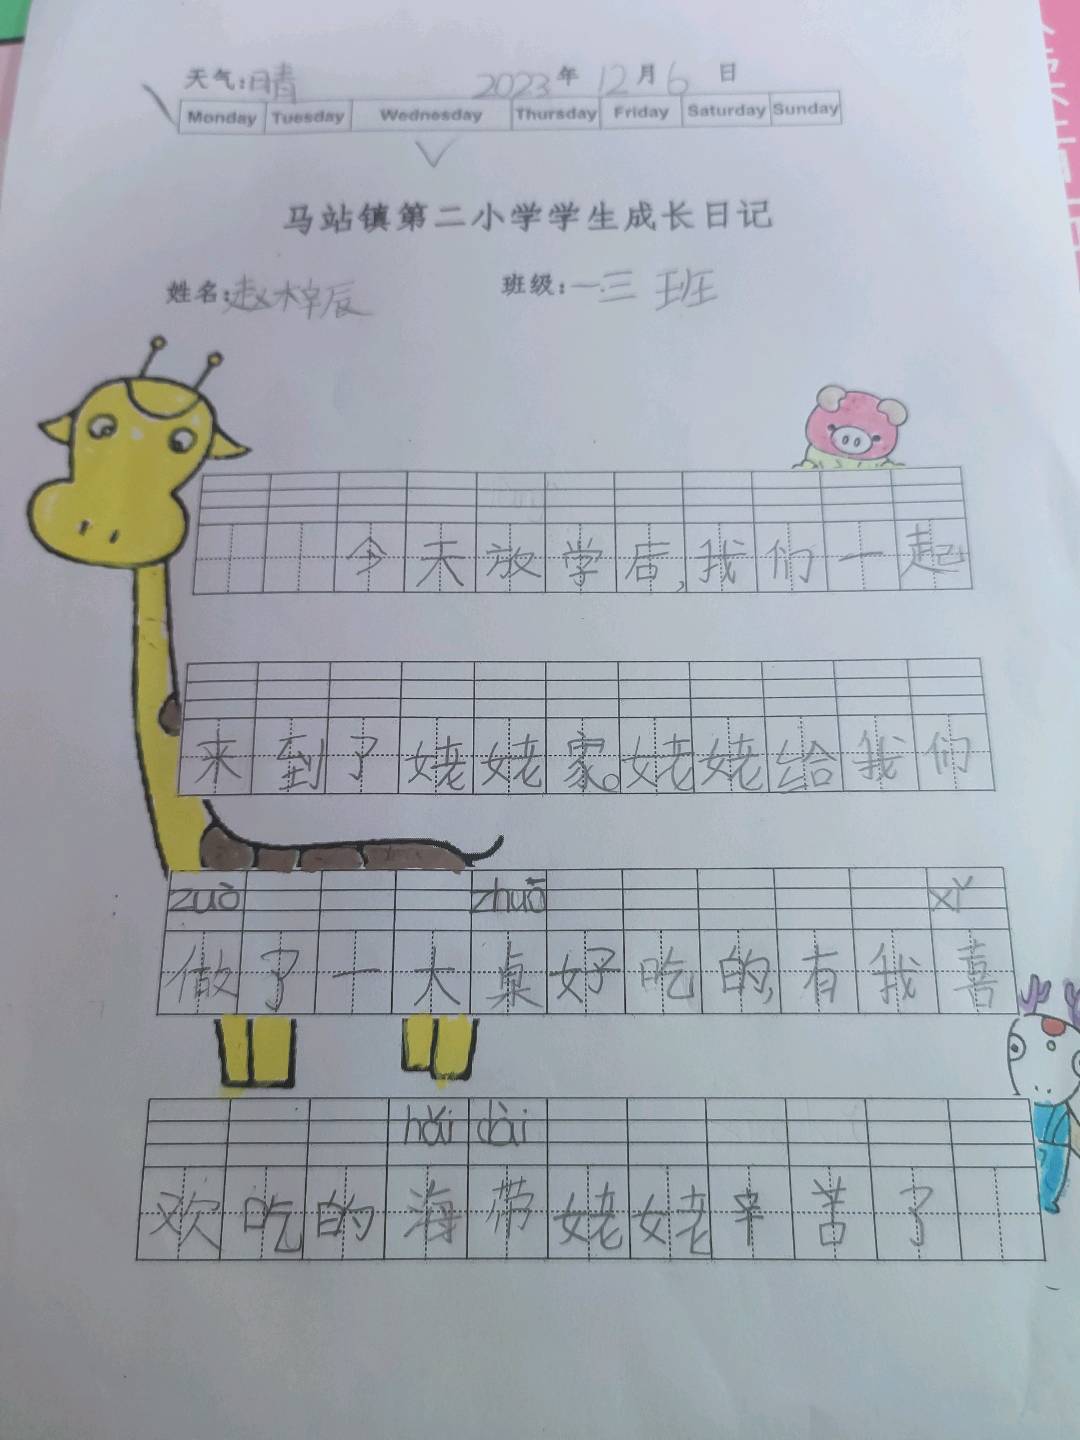 天气:晴 2023年12月6日
Monday Tuesday Wednesday Thursday Friday Saturday Sunday
马站镇第二小学学生成长日记
姓名:赵梓辰 班级:一.三班
今天放学后,我们一起
来到了姥姥家。姥姥给我们
zuò zhuō xǐ
做了一大桌好吃的,有我喜
hǎi dài
欢吃的海带姥姥辛苦了